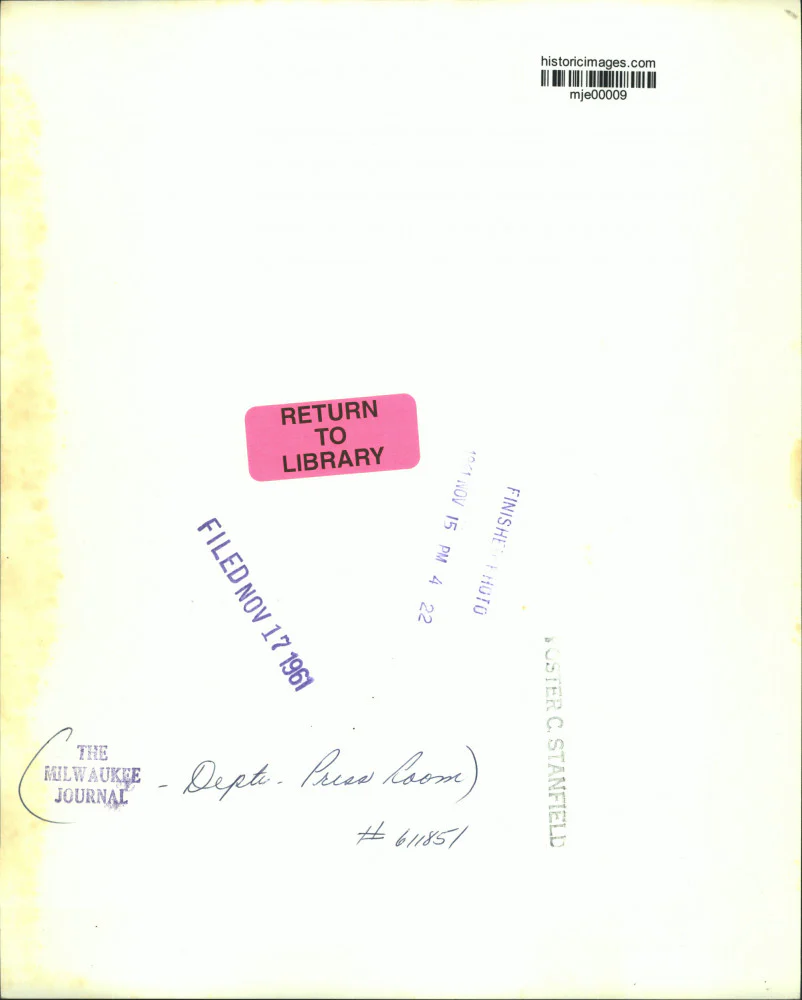 historicimages.com
mje00009
RETURN
TO
LIBRARY
1961 NOV 15 PM 4 22
FINISHED PHOTO
FILED NOV 17 1961
FOSTER C. STANFIELD
(THE
MILWAUKEE
JOURNAL
- Dept. - Press Room)
# 611851